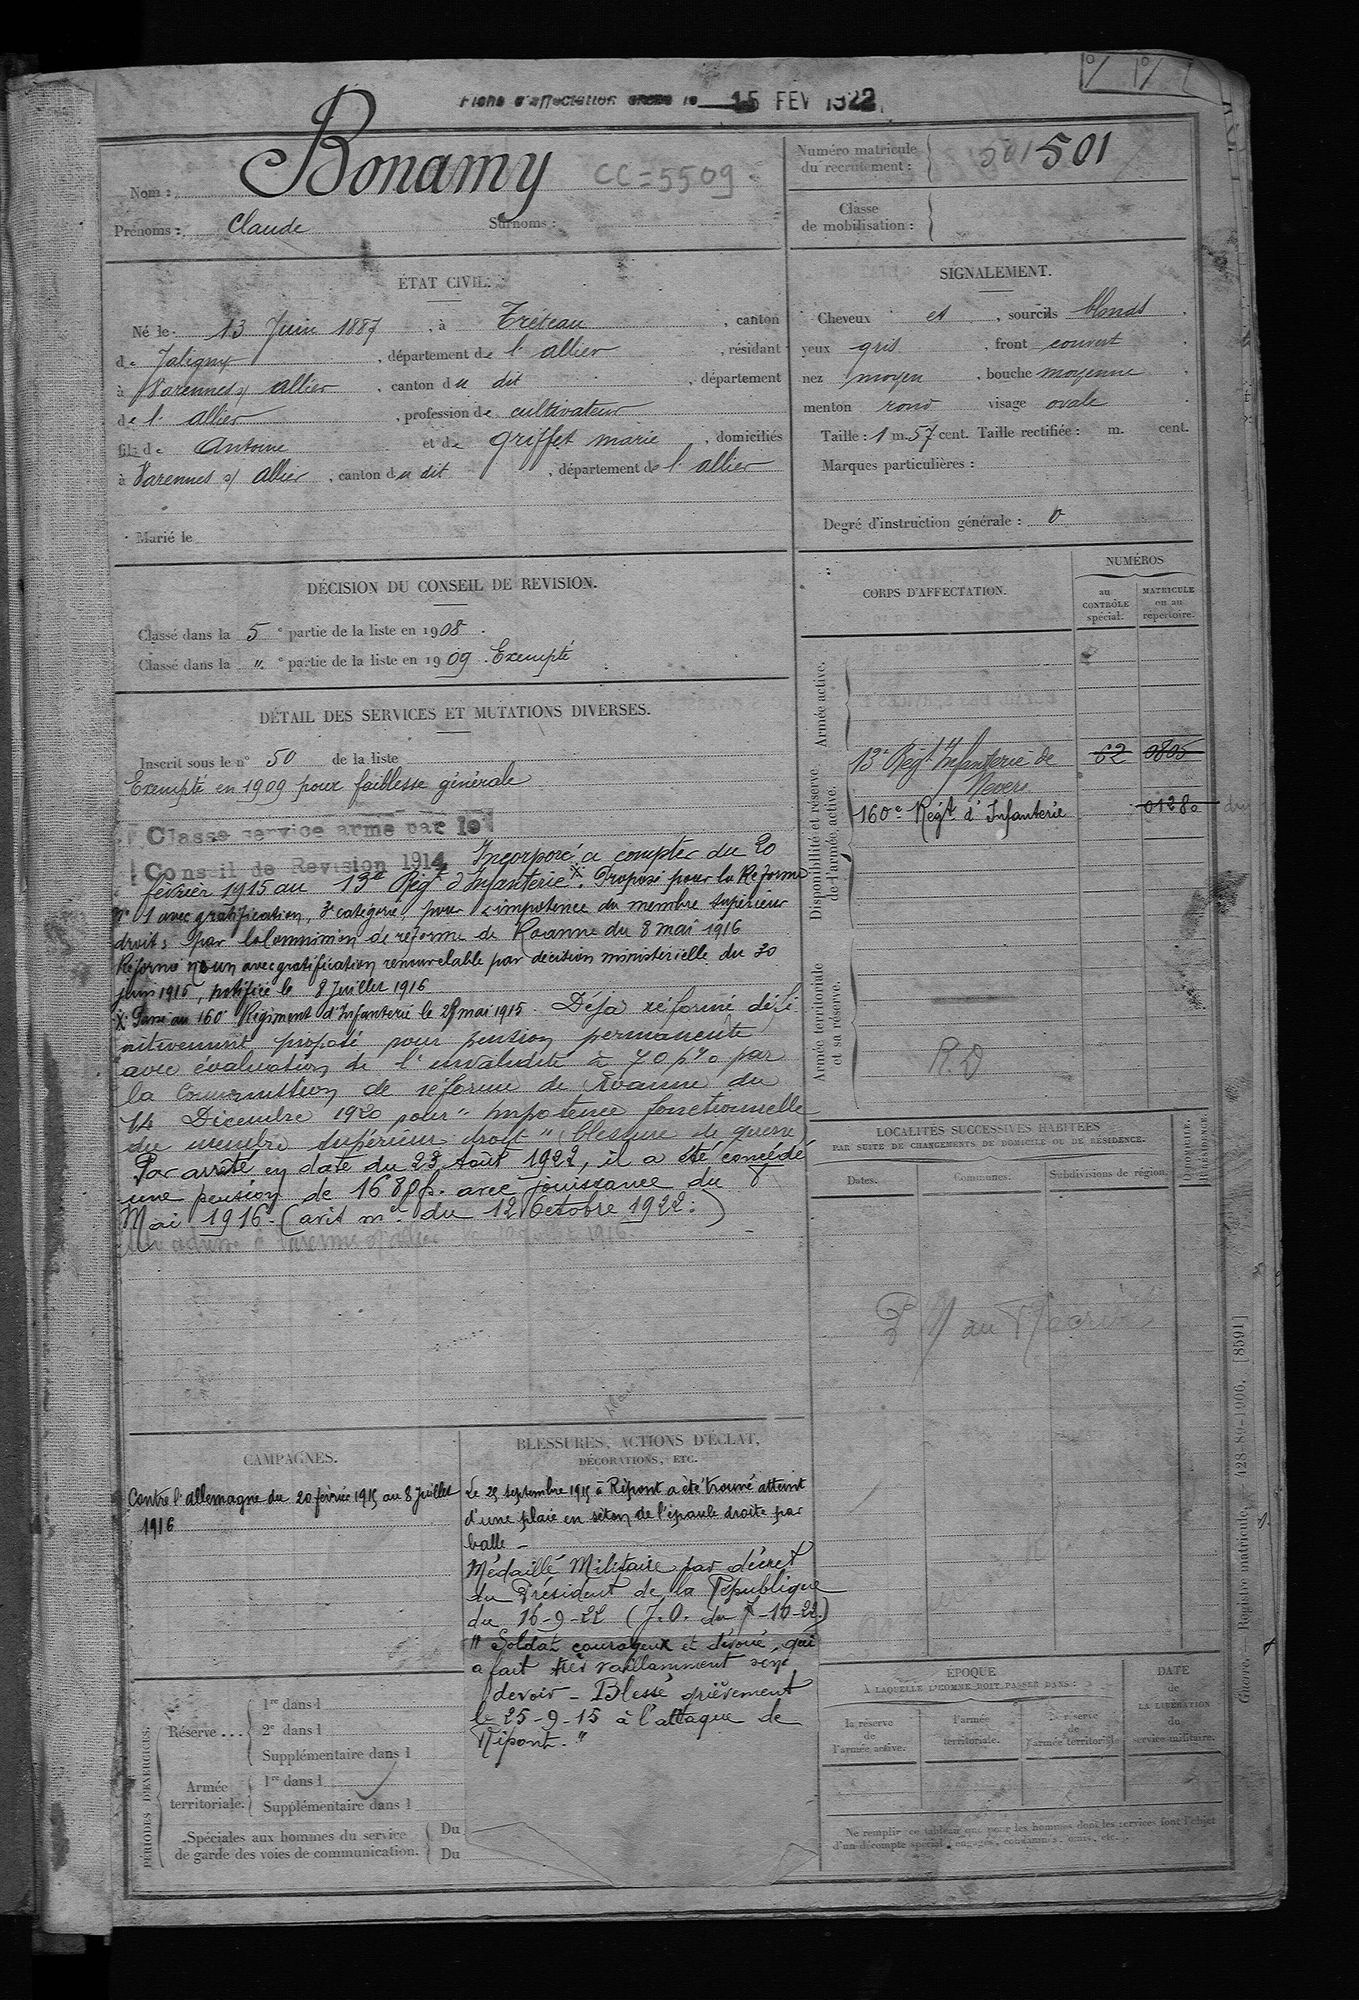 Fiche d'affectation envoyée le 15 FEV 1922
Nom : Bonamy CC=5509
Prénoms : Claude Surnoms :
Numéro matricule du recrutement : 501 501
Classe de mobilisation :
ÉTAT CIVIL.
Né le 13 Juin 1887, à Tréteau, canton
de Jaligny, département de l'allier, résidant
à Varennes s/ allier, canton du dit, département
de l'allier, profession de cultivateur
fils de Antoine et de Griffet marie, domiciliés
à Varennes s/ Allier, canton du dit, département de l'allier
Marié le
SIGNALEMENT.
Cheveux et, sourcils blonds,
yeux gris, front couvert
nez moyen, bouche moyenne,
menton rond visage ovale
Taille : 1 m. 57 cent. Taille rectifiée : m. cent.
Marques particulières :
Degré d'instruction générale : 0
DÉCISION DU CONSEIL DE REVISION.
Classé dans la 5e partie de la liste en 1908.
Classé dans la " e partie de la liste en 1909. Exempté
DÉTAIL DES SERVICES ET MUTATIONS DIVERSES.
Inscrit sous le n° 50 de la liste
Exempté en 1909 pour faiblesse générale
Classé service armé par le
Conseil de Revision 1914 Incorporé à compter du 20
février 1915 au 13e Régt d'Infanterie X. Proposé pour la Réforme
n° 1 avec gratification, 3e catégorie pour "impotence du membre supérieur
droit" par la Commission de réforme de Roanne du 8 mai 1916
Réformé no un avec gratification renouvelable par décision ministérielle du 30
juin 1916, notifiée le 8 Juillet 1916
X Passé au 160e Régiment d'Infanterie le 29 mai 1915. Déjà réformé défi
nitivement proposé pour pension permanente
avec évaluation de l'invalidité à 70 p% par
la Commission de réforme de Roanne du
14 Décembre 1920 pour "impotence fonctionnelle
du membre supérieur droit" (blessure de guerre)
Par arrêté en date du 23 Août 1922, il a été concédé
une pension de 1680f. avec jouissance du 8
Mai 1916. (avis mel du 12 Octobre 1922.)
CORPS D'AFFECTATION.
NUMÉROS
au CONTRÔLE spécial.
MATRICULE ou au répertoire.
Armée active.
Disponibilité et réserve de l'armée active.
13e Régt Infanterie de Nevers 62 0805
160e Régt d'Infanterie 01280
Armée territoriale et sa réserve.
R. D
LOCALITÉS SUCCESSIVES HABITÉES
PAR SUITE DE CHANGEMENTS DE DOMICILE OU DE RÉSIDENCE.
Dates. Communes. Subdivisions de région. D. DOMICILE. R. RÉSIDENCE.
CAMPAGNES.
Contre l'allemagne du 20 février 1915 au 8 Juillet
1916
BLESSURES, ACTIONS D'ÉCLAT,
DÉCORATIONS, ETC.
Le 25 septembre 1915 à Ripont a été trouvé atteint
d'une plaie en séton de l'épaule droite par
balle -
Médaillé Militaire par décret
du Président de la République
du 16-9-22 (J.O. du 7-10-22.)
"Soldat courageux et dévoué, qui
a fait très vaillamment son
devoir - Blessé grièvement
le 25-9-15 à l'attaque de
Ripont."
PÉRIODES D'EXERCICES.
Réserve... 1re dans l
2e dans l
Supplémentaire dans l
Armée territoriale. 1re dans l
Supplémentaire dans l
Spéciales aux hommes du service
de garde des voies de communication. Du
Du
ÉPOQUE
À LAQUELLE L'HOMME DOIT PASSER DANS :
la réserve de l'armée active.
l'armée territoriale.
la réserve de l'armée territoriale
DATE de LA LIBÉRATION du service militaire.
Ne remplir ce tableau que pour les hommes dont les services font l'objet
d'un décompte spécial, engagés, condamnés, omis, etc.
Guerre. Registre matricule, 428-89-1906. [8591]